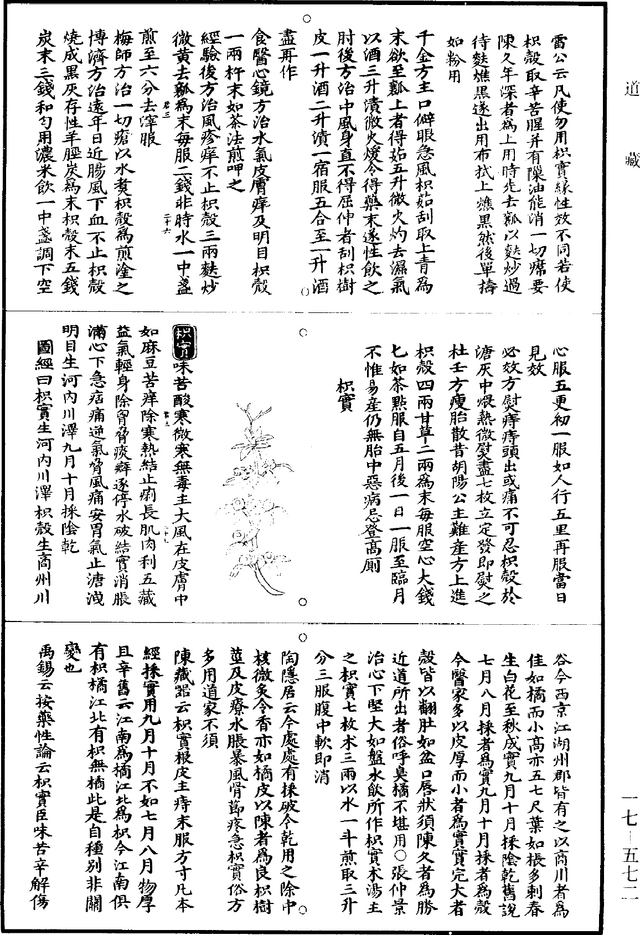 道藏
雷公云凡使勿用枳實緣性效不同若使
枳殼取辛苦腥并有隟油能消一切㿂要
陳久年深者爲上用時先去瓤以麩炒過
待麩燋黑遂出用布拭上燋黑然後單擣
如粉用
千金方主口僻眼急風枳茹刮取上青爲
末欲至瓤上者得茹五升微火灼去濕氣
以酒三升漬微火煖令得藥末遂性飲之
肘後方治中風身直不得屈伸者刮枳樹
皮一升酒二升漬一宿服五合至一升酒
盡再作
食醫心鏡方治水氣皮膚癢及明目枳殼
一兩杵末如茶法煎呷之
經驗後方治風疹癢不止枳殼三兩麩炒
微黃去瓤爲末每服二錢非時水一中盞
煎至六分去滓服
梅師方治一切瘡以水煑枳殼爲煎塗之
博濟方治遠年日近腸風下血不止枳殼
燒成黑灰存性羊脛炭爲末枳殼末五錢
炭末三錢和勻用濃米飲一中盞調下空
心服五更初一服如人行五里再服當日
見效
必效方熨痔痔頭出或痛不可忍枳殼於
溏灰中煨熱微熨盡七枚立定發即熨之
杜壬方瘦胎散昔胡陽公主難産方上進
枳殼四兩甘草二兩爲末每服空心大錢
匕如茶點服自五月後一日一服至臨月
不惟易産仍無胎中惡病忌登高厠
枳實
枳實味苦酸寒微寒無毒主大風在皮膚中
如麻豆苦痒除寒熱結止痢長肌肉利五藏
益氣輕身除胷脅痰癖逐停水破結實消脹
滿心下急痞痛逆氣脅風痛安胃氣止溏洩
明目生河內川澤九月十月採陰乾
圖經曰枳實生河內川澤枳殼生商州川
谷今西京江湖州郡皆有之以商川者爲
佳如橘而小高亦五七尺葉如棖多刺春
生白花至秋成實九月十月採陰乾舊說
七月八月採者爲實九月十月採者爲殼
今醫家多以皮厚而小者爲實實完大者
殼皆以翻肚如盆口唇狀須陳久者爲勝
近道所出者俗呼臭橘不堪用○張仲景
治心下堅大如盤水飲所作枳實朮湯主
之枳實七枚朮三兩以水一斗煎取三升
分三服腹中軟即消
陶隱居云今處處有採破令乾用之除中
核微炙令香亦如橘皮以陳者爲良枳樹
莖及皮療水脹暴風骨節疼急枳實俗方
多用道家不須
陳藏器云枳實根皮主痔末服方寸匕本
經採實用九月十月不如七月八月物厚
且辛舊云江南爲橘江北爲枳今江南俱
有枳橘江北有枳無橘此是自種別非關
變也
禹錫云按藥性論云枳實臣味苦辛解傷
一七—五七二